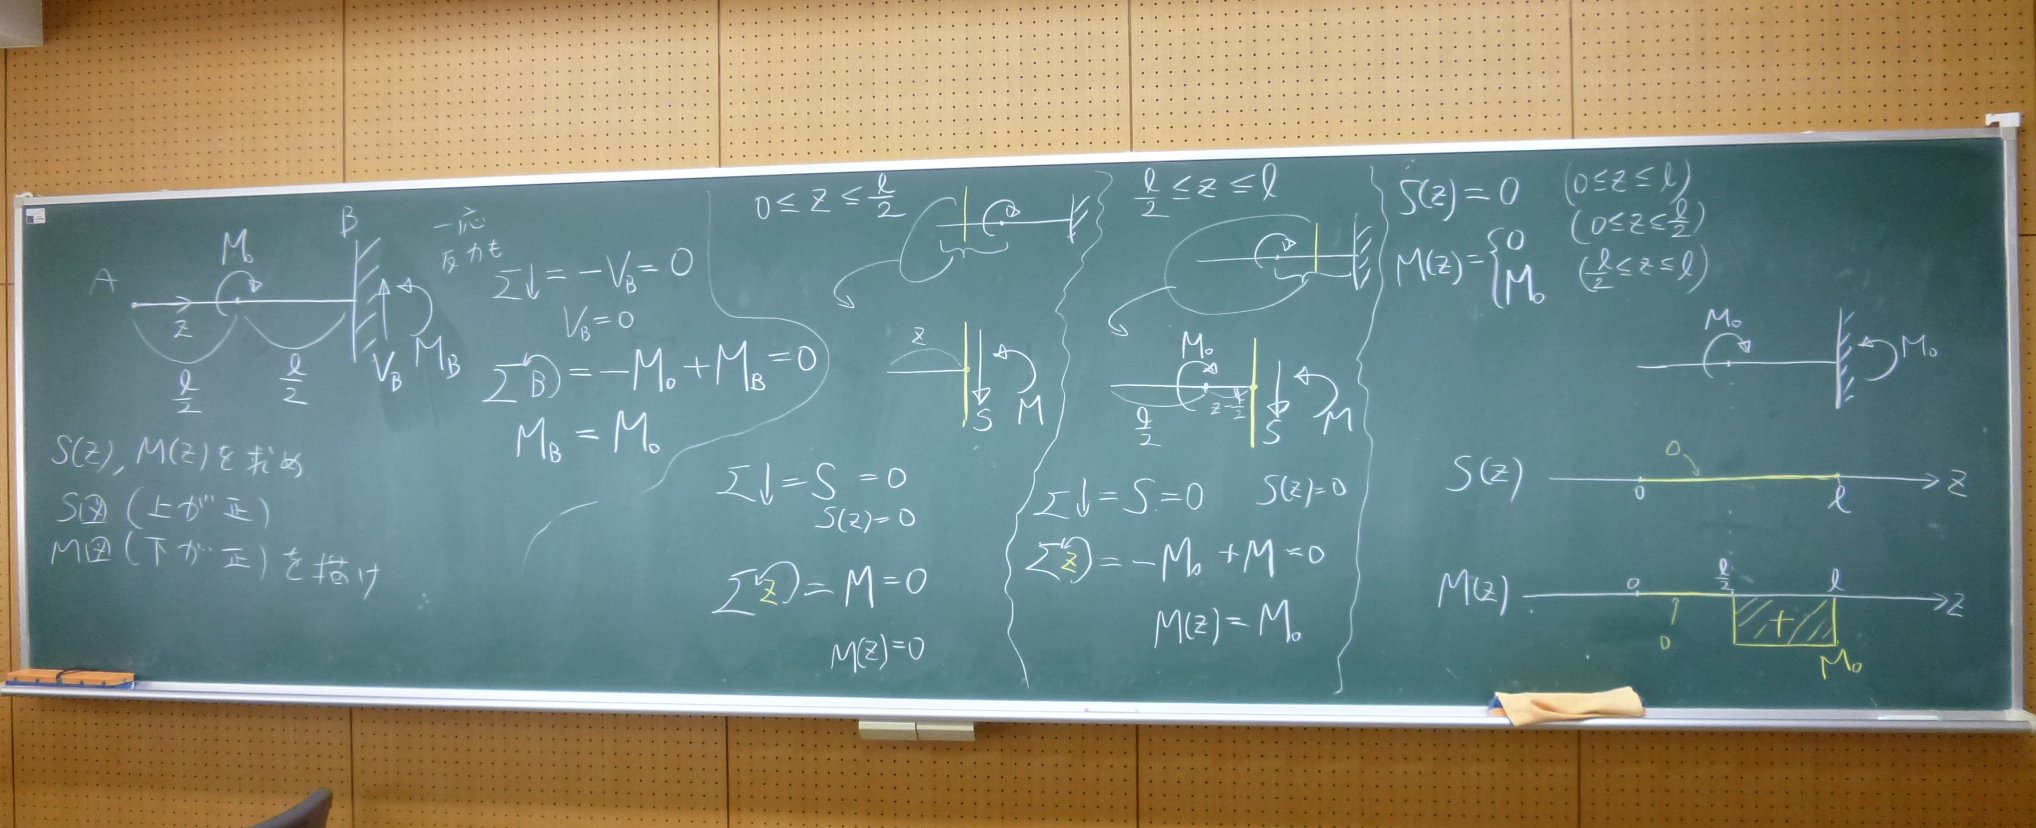 A
M₀
B
z
l/2
l/2
V_B
M_B
一応
反力も
S(z), M(z)を求め
S図 (上が正)
M図 (下が正)を描け
Σ↓ = -V_B = 0
V_B = 0
ΣB = -M₀ + M_B = 0
M_B = M₀
0 ≤ z ≤ l/2
z
S
M
Σ↓ = S = 0
S(z) = 0
Σz = M = 0
M(z) = 0
l/2 ≤ z ≤ l
M₀
l/2
z - l/2
S
M
Σ↓ = S = 0 S(z) = 0
Σz = -M₀ + M = 0
M(z) = M₀
S(z) = 0 (0 ≤ z ≤ l)
M(z) = { 0 (0 ≤ z ≤ l/2)
M₀ (l/2 ≤ z ≤ l)
M₀
M₀
S(z)
0
0
l
z
M(z)
0
l/2
l
z
0
+
M₀